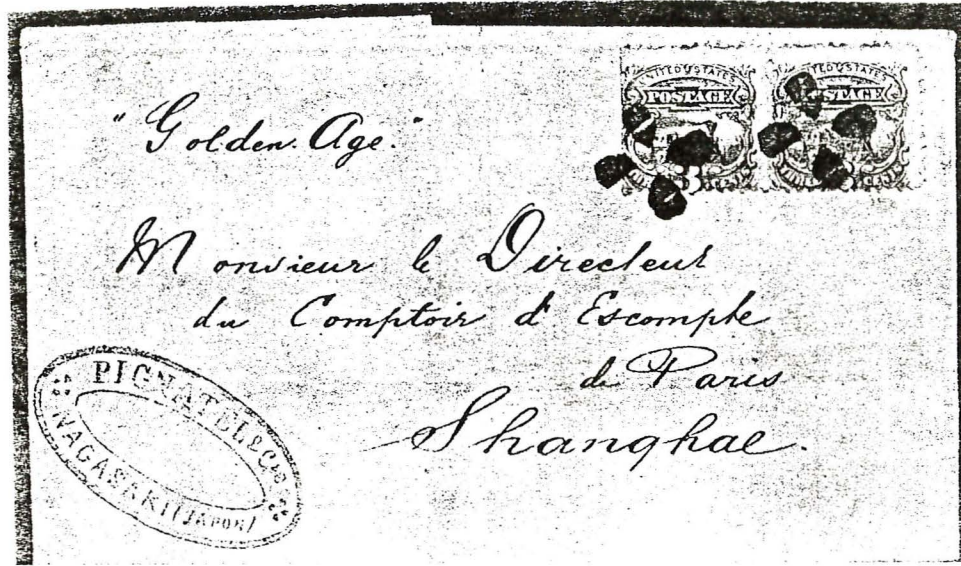 "Golden Age."
UNITED STATES
POSTAGE
UNITED STATES
POSTAGE
3
Monsieur le Directeur
du Comptoir d'Escompte
de Paris
Shanghae.
PIGNATEL & Cie
NAGASAKI (JAPON)